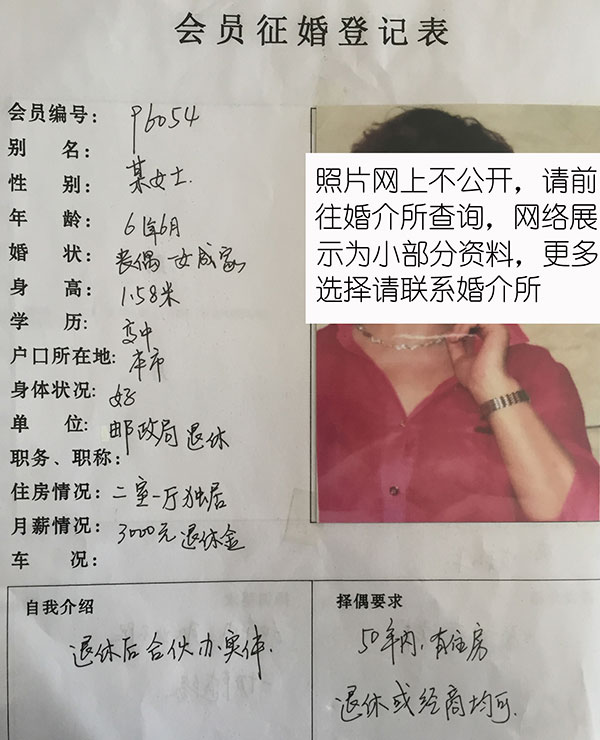 会员征婚登记表
会员编号: P6054
别 名: 某女士.
性 别:
年 龄: 61年6月
婚 状: 丧偶 女成家
身 高: 1.58米
学 历: 高中
户口所在地: 本市
身体状况: 好
单 位: 邮政局退休
职务、职称:
住房情况: 二室一厅独居
月薪情况: 3000元退休金
车 况:
照片网上不公开，请前
往婚介所查询，网络展
示为小部分资料，更多
选择请联系婚介所
自我介绍
退休后合伙办实体.
择偶要求
50年内，有住房
退休或经商均可.